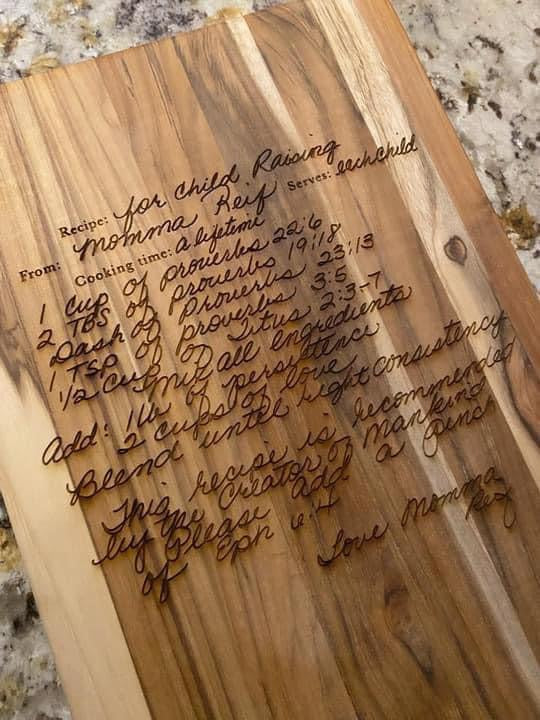 Recipe: for Child Raising
From: Momma Reif Serves: each child
Cooking time: a lifetime
1 cup of Proverbs 22:6
2 TBS of Proverbs 19:18
Dash of Proverbs 23:13
1 TSP of Proverbs 3:5
1/2 cup of Titus 2:3-7
Mix all Engredients
Add: 1 lb of persistence
2 cups of love
Blend until right consistency
This recipe is recommended
by the Creator of Mankind
Please add a pinch
of Eph 6:4
Love Momma
Reif